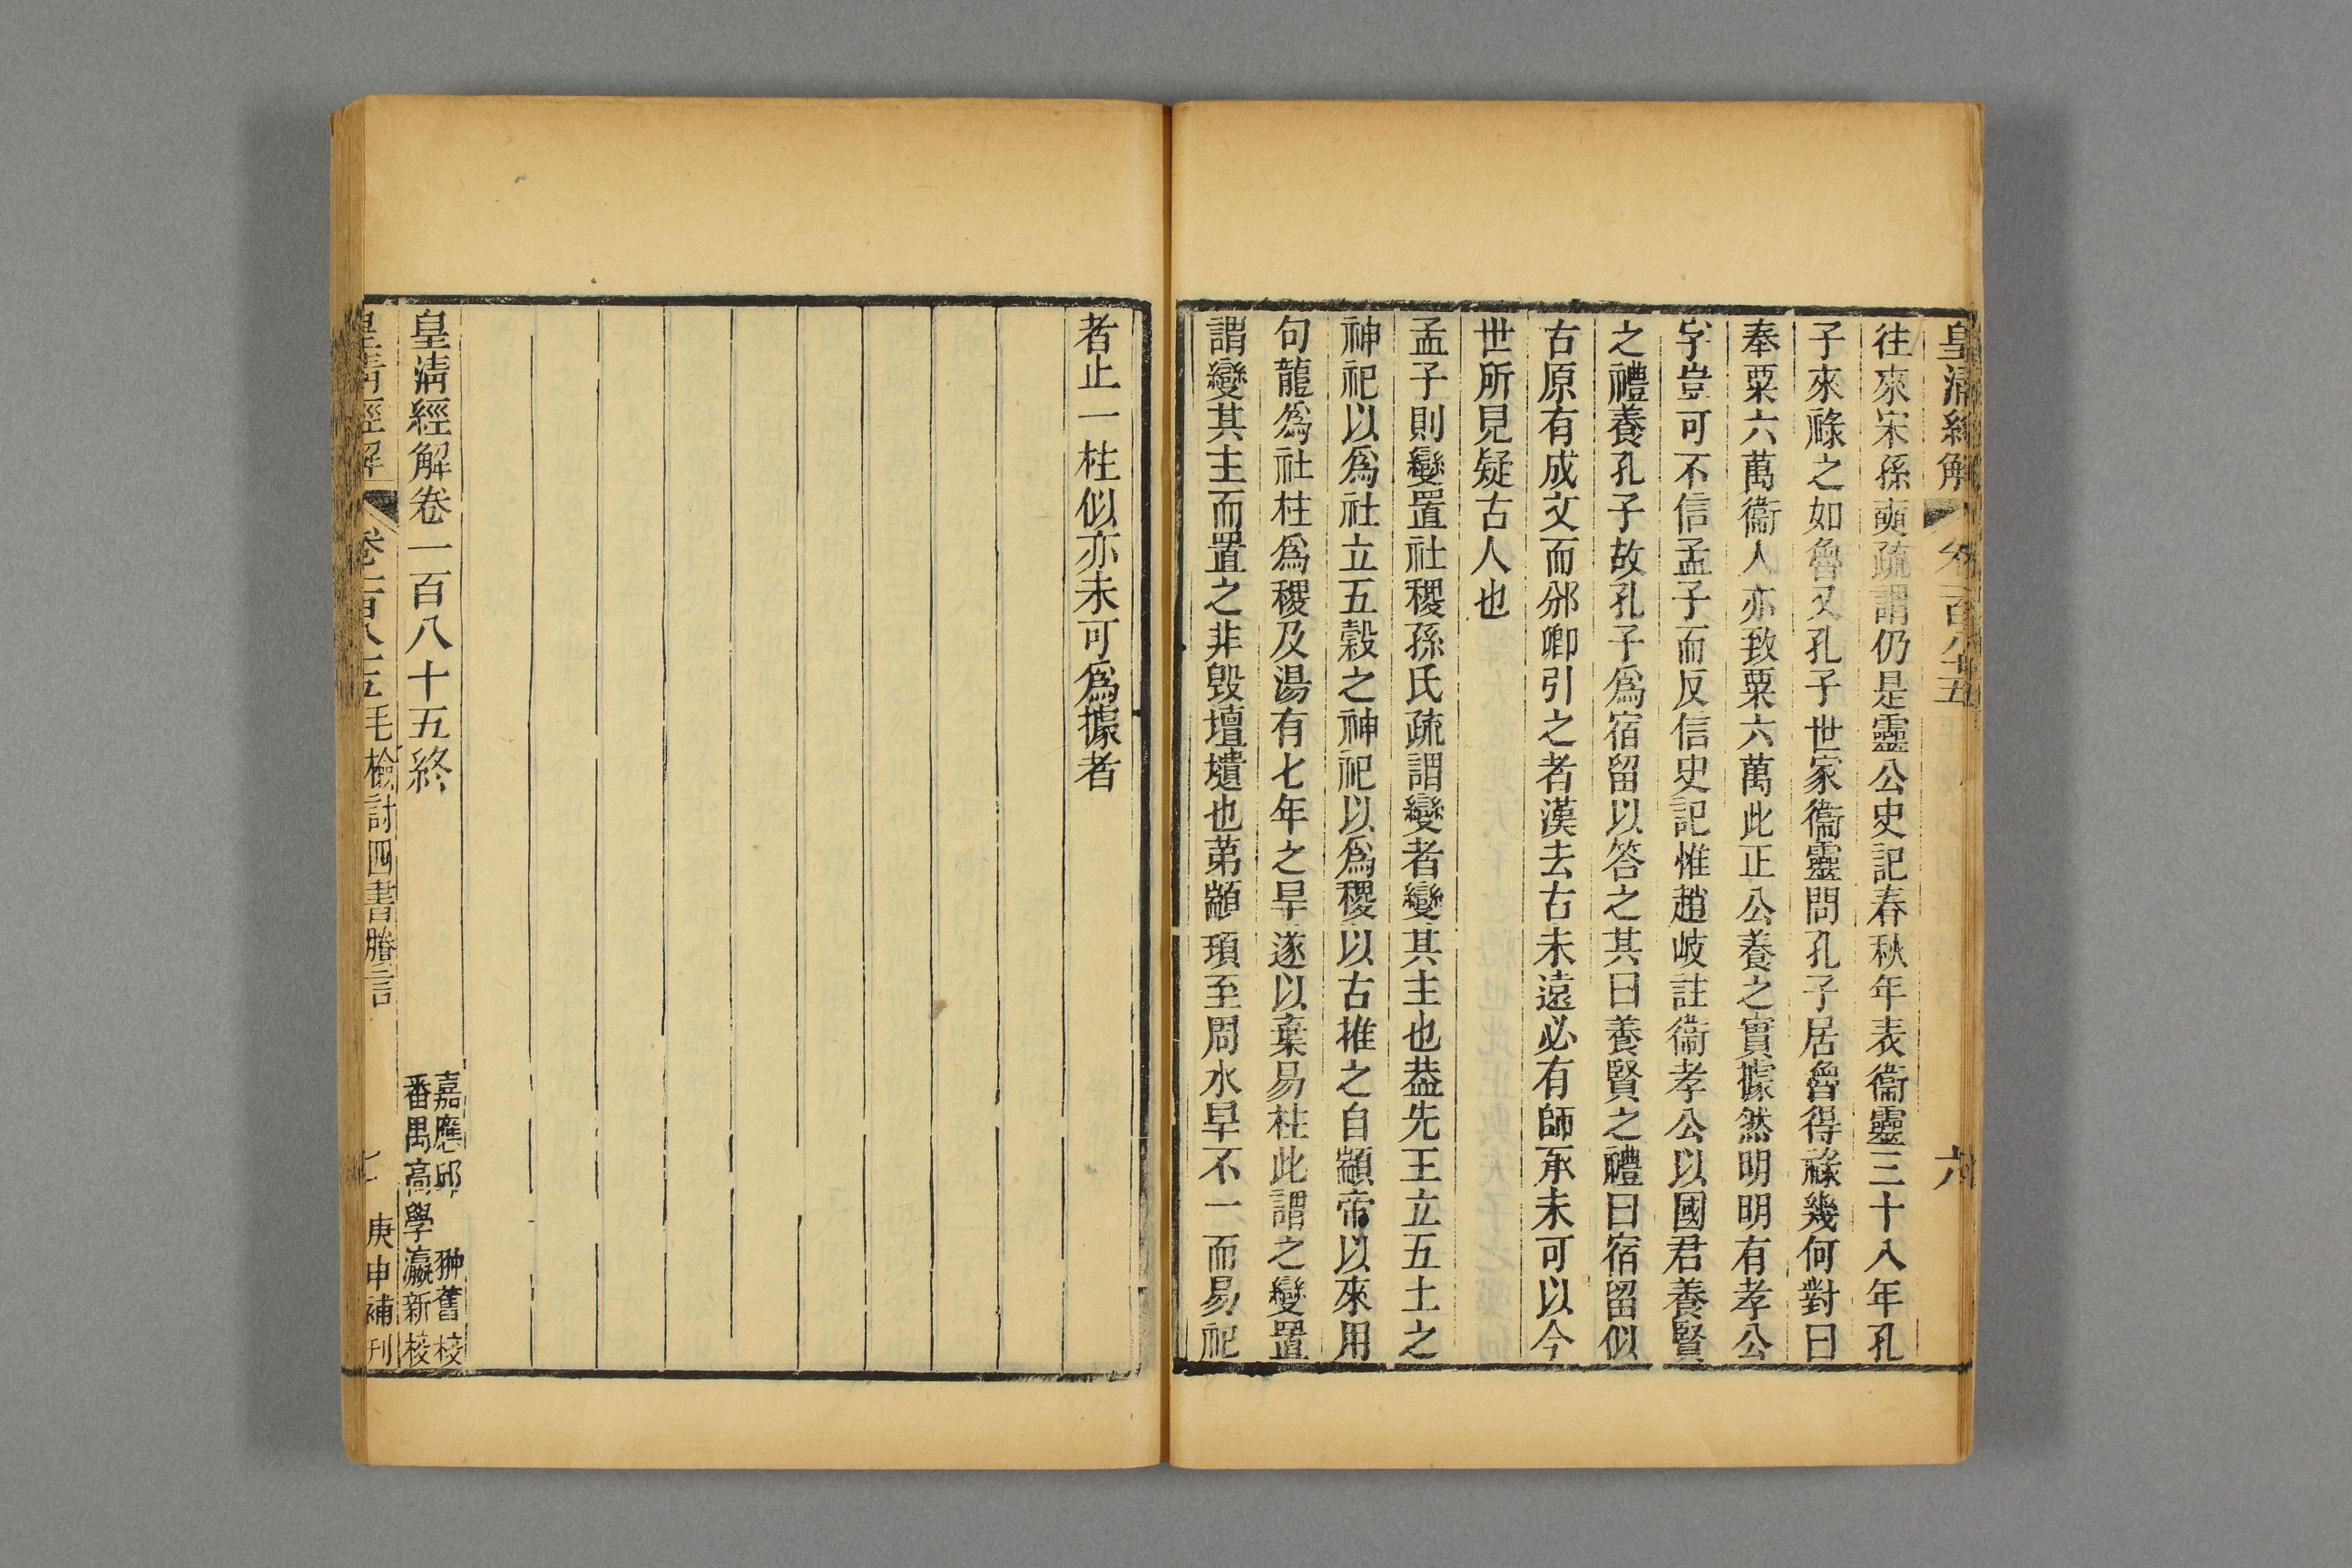 皇清經解 卷一百八十五 六
往來宋孫奭疏謂仍是靈公史記春秋年表衞靈三十八年孔
子來祿之如魯又孔子世家衞靈問孔子居魯得祿幾何對曰
奉粟六萬衞人亦致粟六萬此正公養之實據然明明有孝公
字豈可不信孟子而反信史記惟趙岐註衞孝公以國君養賢
之禮養孔子故孔子爲宿留以答之其曰養賢之禮曰宿留似
古原有成文而邠卿引之者漢去古未遠必有師承未可以今
世所見疑古人也
孟子則變置社稷孫氏疏謂變者變其主也葢先王立五土之
神祀以爲社立五穀之神祀以爲稷以古推之自顓帝以來用
句龍爲社柱爲稷及湯有七年之旱遂以棄易柱此謂之變置
謂變其主而置之非毀壇壝也苐顓頊至周水旱不一而易祀
者止一柱似亦未可爲據者
皇清經解卷一百八十五終
嘉應邱翀舊校
番禺高學瀛新校
皇清經解 卷一百八十五 毛檢討四書賸言 七 庚申補刊